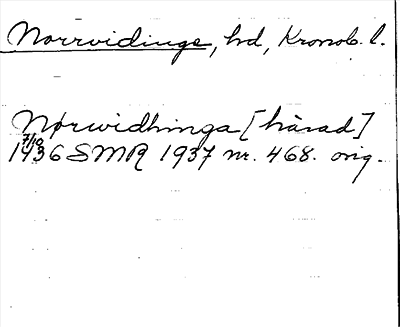 Norrvidinge, hd, Kronob. l.
Nørwidhinga [härad]
7/10
1436 SMR 1937 nr. 468. orig.